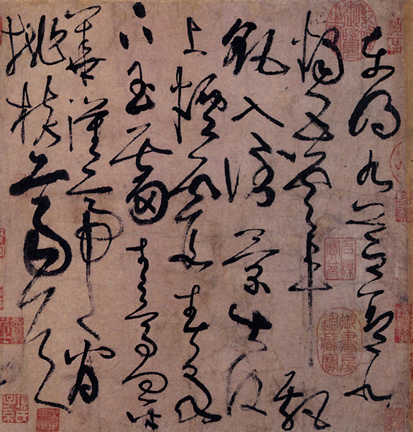 東明九芝蓋北
燭五雲車飄
飖入倒景出沒
上煙霞春泉
下玉霤青鳥向金
華漢帝看
桃核齊侯問